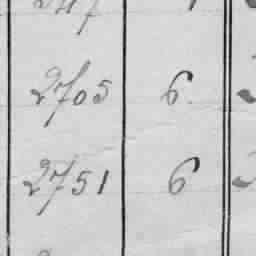 2705 6
2751 6